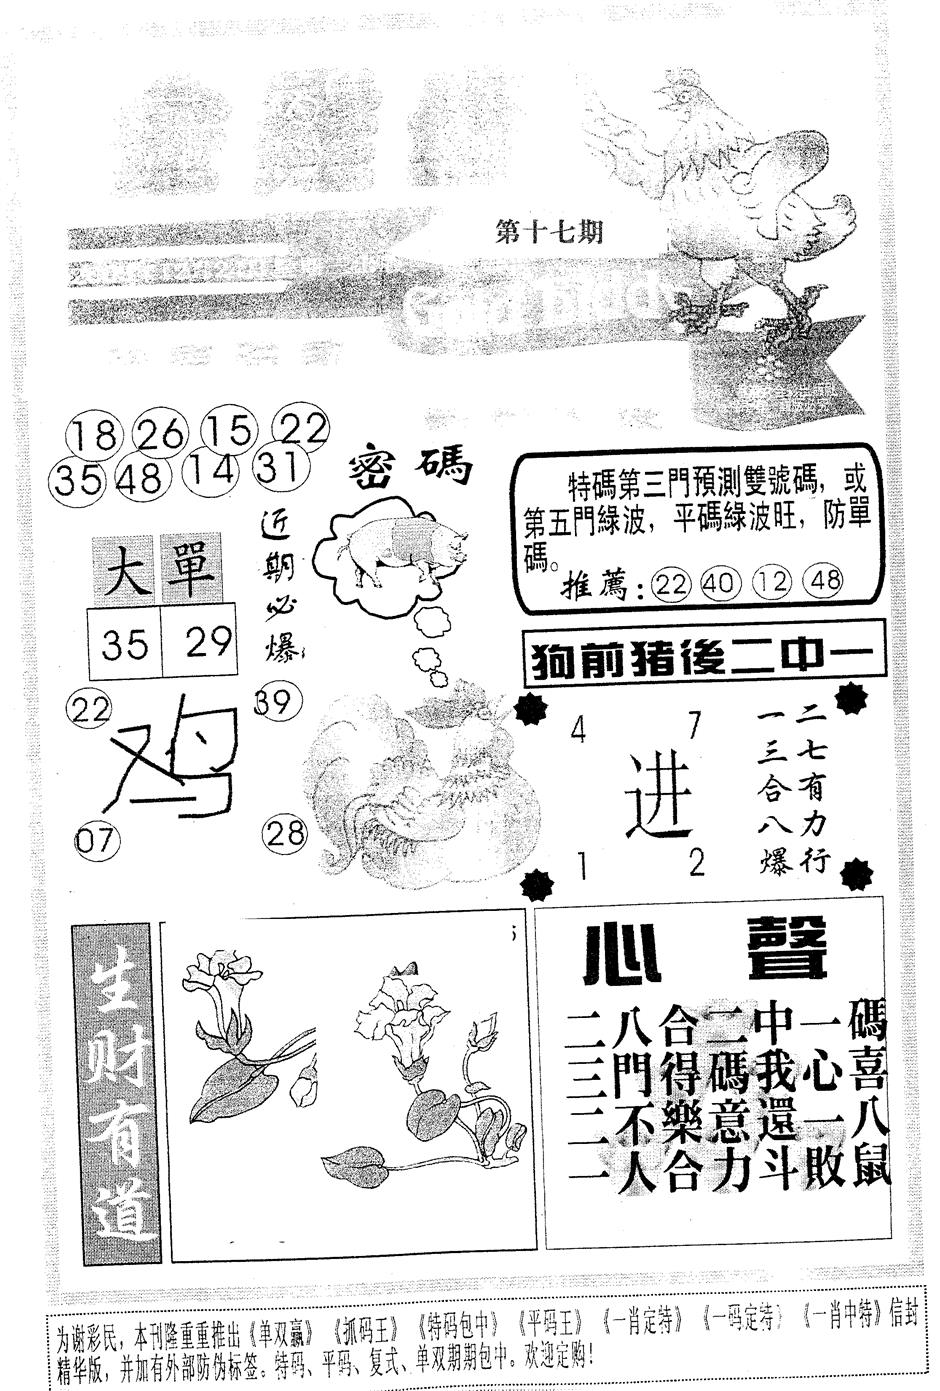 第十七期
18 26 15 22
35 48 14 31
密碼
近期必爆
大 單
35 29
22 39
鸡
07 28
特碼第三門預測雙號碼，或
第五門綠波，平碼綠波旺，防單
碼。
推薦：22 40 12 48
狗前猪後二中一
4 7
进
1 2
二七有力行
一三合八爆
生财有道
心聲
二八合二中一碼
三門得碼我心喜
二不樂意還一八
一人合力斗敗鼠
为谢彩民，本刊隆重重推出《单双赢》《抓码王》《特码包中》《平码王》《一肖定特》《一码定特》《一肖中特》信封
精华版，并加有外部防伪标签。特码、平码、复式、单双期期包中。欢迎定购！